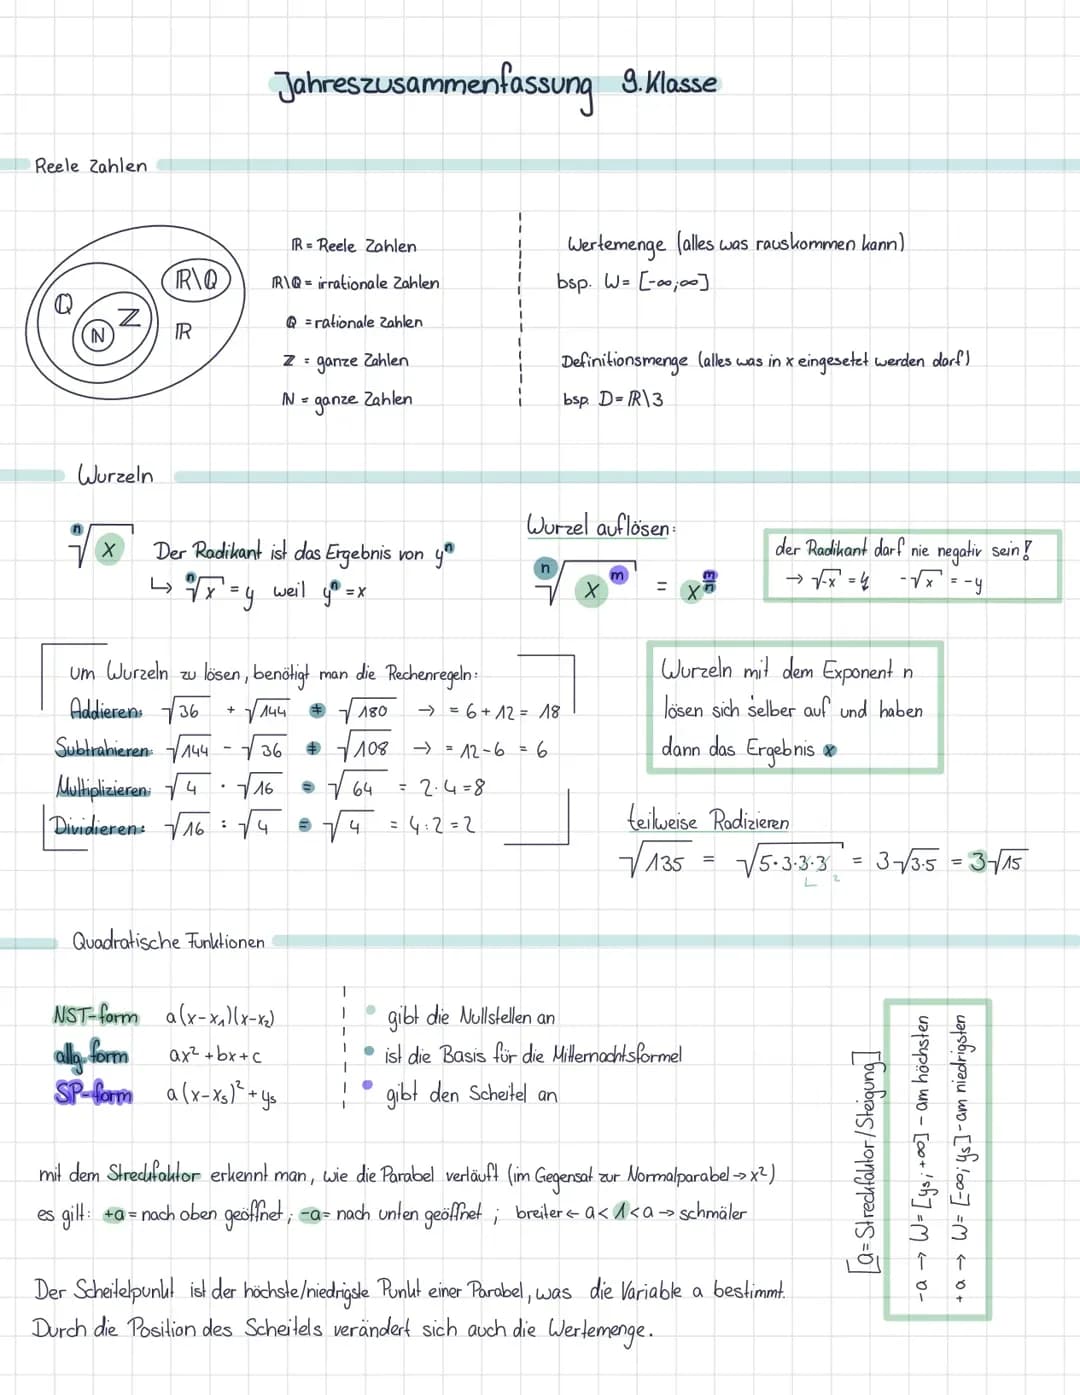 Jahreszusammenfassung 9. Klasse
Reele Zahlen
Q
N
Z
R\Q
ℝ
ℝ = Reele Zahlen
ℝ\Q = irrationale Zahlen
Q = rationale Zahlen
Z = ganze Zahlen
ℕ = ganze Zahlen
Wertemenge (alles was rauskommen kann)
bsp. W= [-∞;∞]
Definitionsmenge (alles was in x eingesetzt werden darf)
bsp. D= ℝ\3
Wurzeln
ⁿ√x Der Radikant ist das Ergebnis von yⁿ
↳ ⁿ√x = y weil yⁿ = x
Wurzel auflösen:
ⁿ√xᵐ = x^(m/n)
der Radikant darf nie negativ sein!
→ √-x = -√x = -y
um Wurzeln zu lösen, benötigt man die Rechenregeln:
Addieren: √36 + √144 ≠ √180 → = 6+12 = 18
Subtrahieren: √144 - √36 ≠ √108 → = 12-6 = 6
Multiplizieren: √4 · √16 = √64 = 2·4=8
Dividieren: √16 : √4 = √4 = 4:2=2
Wurzeln mit dem Exponent n
lösen sich selber auf und haben
dann das Ergebnis x
teilweise Radizieren
√135 = √5·3·3·3 = 3√3·5 = 3√15
2
Quadratische Funktionen
NST-form a(x-x₁)(x-x₂)
allg. form ax² +bx+c
SP-form a(x-xs)² + ys
• gibt die Nullstellen an
• ist die Basis für die Mitternachtsformel
• gibt den Scheitel an
[a= Streckfaktor/Steigung]
-a → W= [ys; +∞] - am höchsten
+a → W= [-∞; ys] - am niedrigsten
mit dem Streckfaktor erkennt man, wie die Parabel verläuft (im Gegensat zur Normalparabel → x²)
es gilt: +a = nach oben geöffnet; -a = nach unten geöffnet ; breiter ← a< 1 <a → schmäler
Der Scheitelpunkt ist der höchste/niedrigste Punkt einer Parabel, was die Variable a bestimmt.
Durch die Position des Scheitels verändert sich auch die Wertemenge.